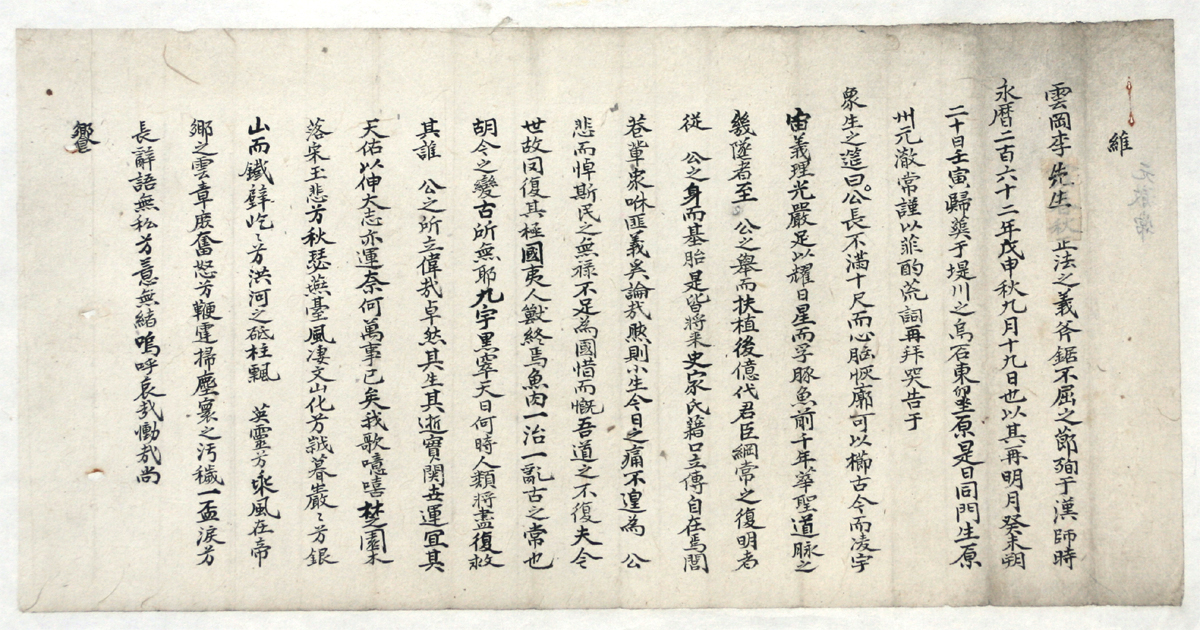 維
雲岡李先生 正法之義斧鋸不屈之節殉于漢師時
永曆二百六十二年戊申秋九月十九日也以其再明月癸未朔
二十日壬寅歸葬于堤川之烏石東堂原是日同門生原
州元澈常謹以菲酌荒詞再拜哭告于
象生之造曰公長不滿十尺而心腦恢廓可以櫛古今而凌宇
宙義理光嚴足以耀日星而孚豚魚前千年華聖道脉之
幾墜者至 公之舉而扶植後億代君臣綱常之復明者
從 公之身而基胎是皆將來史家氏籍口立傳自在焉閭
巷輩衆咻匪義奚論哉然則小生今日之痛不遑為 公
悲而悼斯民之無祿不足為國惜而慨吾道之不復夫令
世故罔復其極國夷人獸終焉魚肉一治一亂古之常也
胡今之變古所無耶九宇黑窣天日何時人類將盡復救
其誰 公之所立偉哉卓然其生其逝實関世運宜其
天佑以伸大志亦運奈何萬事已矣我歌噫嘻楚園木
落宋玉悲兮秋瑟燕臺風凄文山化兮兢暮巖〻兮銀
山而鐵壁屹〻兮洪河之砥柱飄 英靈兮乘風在帝
鄉之雲章廢奮怒兮鞭霆掃塵寰之汚穢一盃淚兮
長辭語無私兮意無緒嗚呼哀哉慟哉尚
饗
元澈常